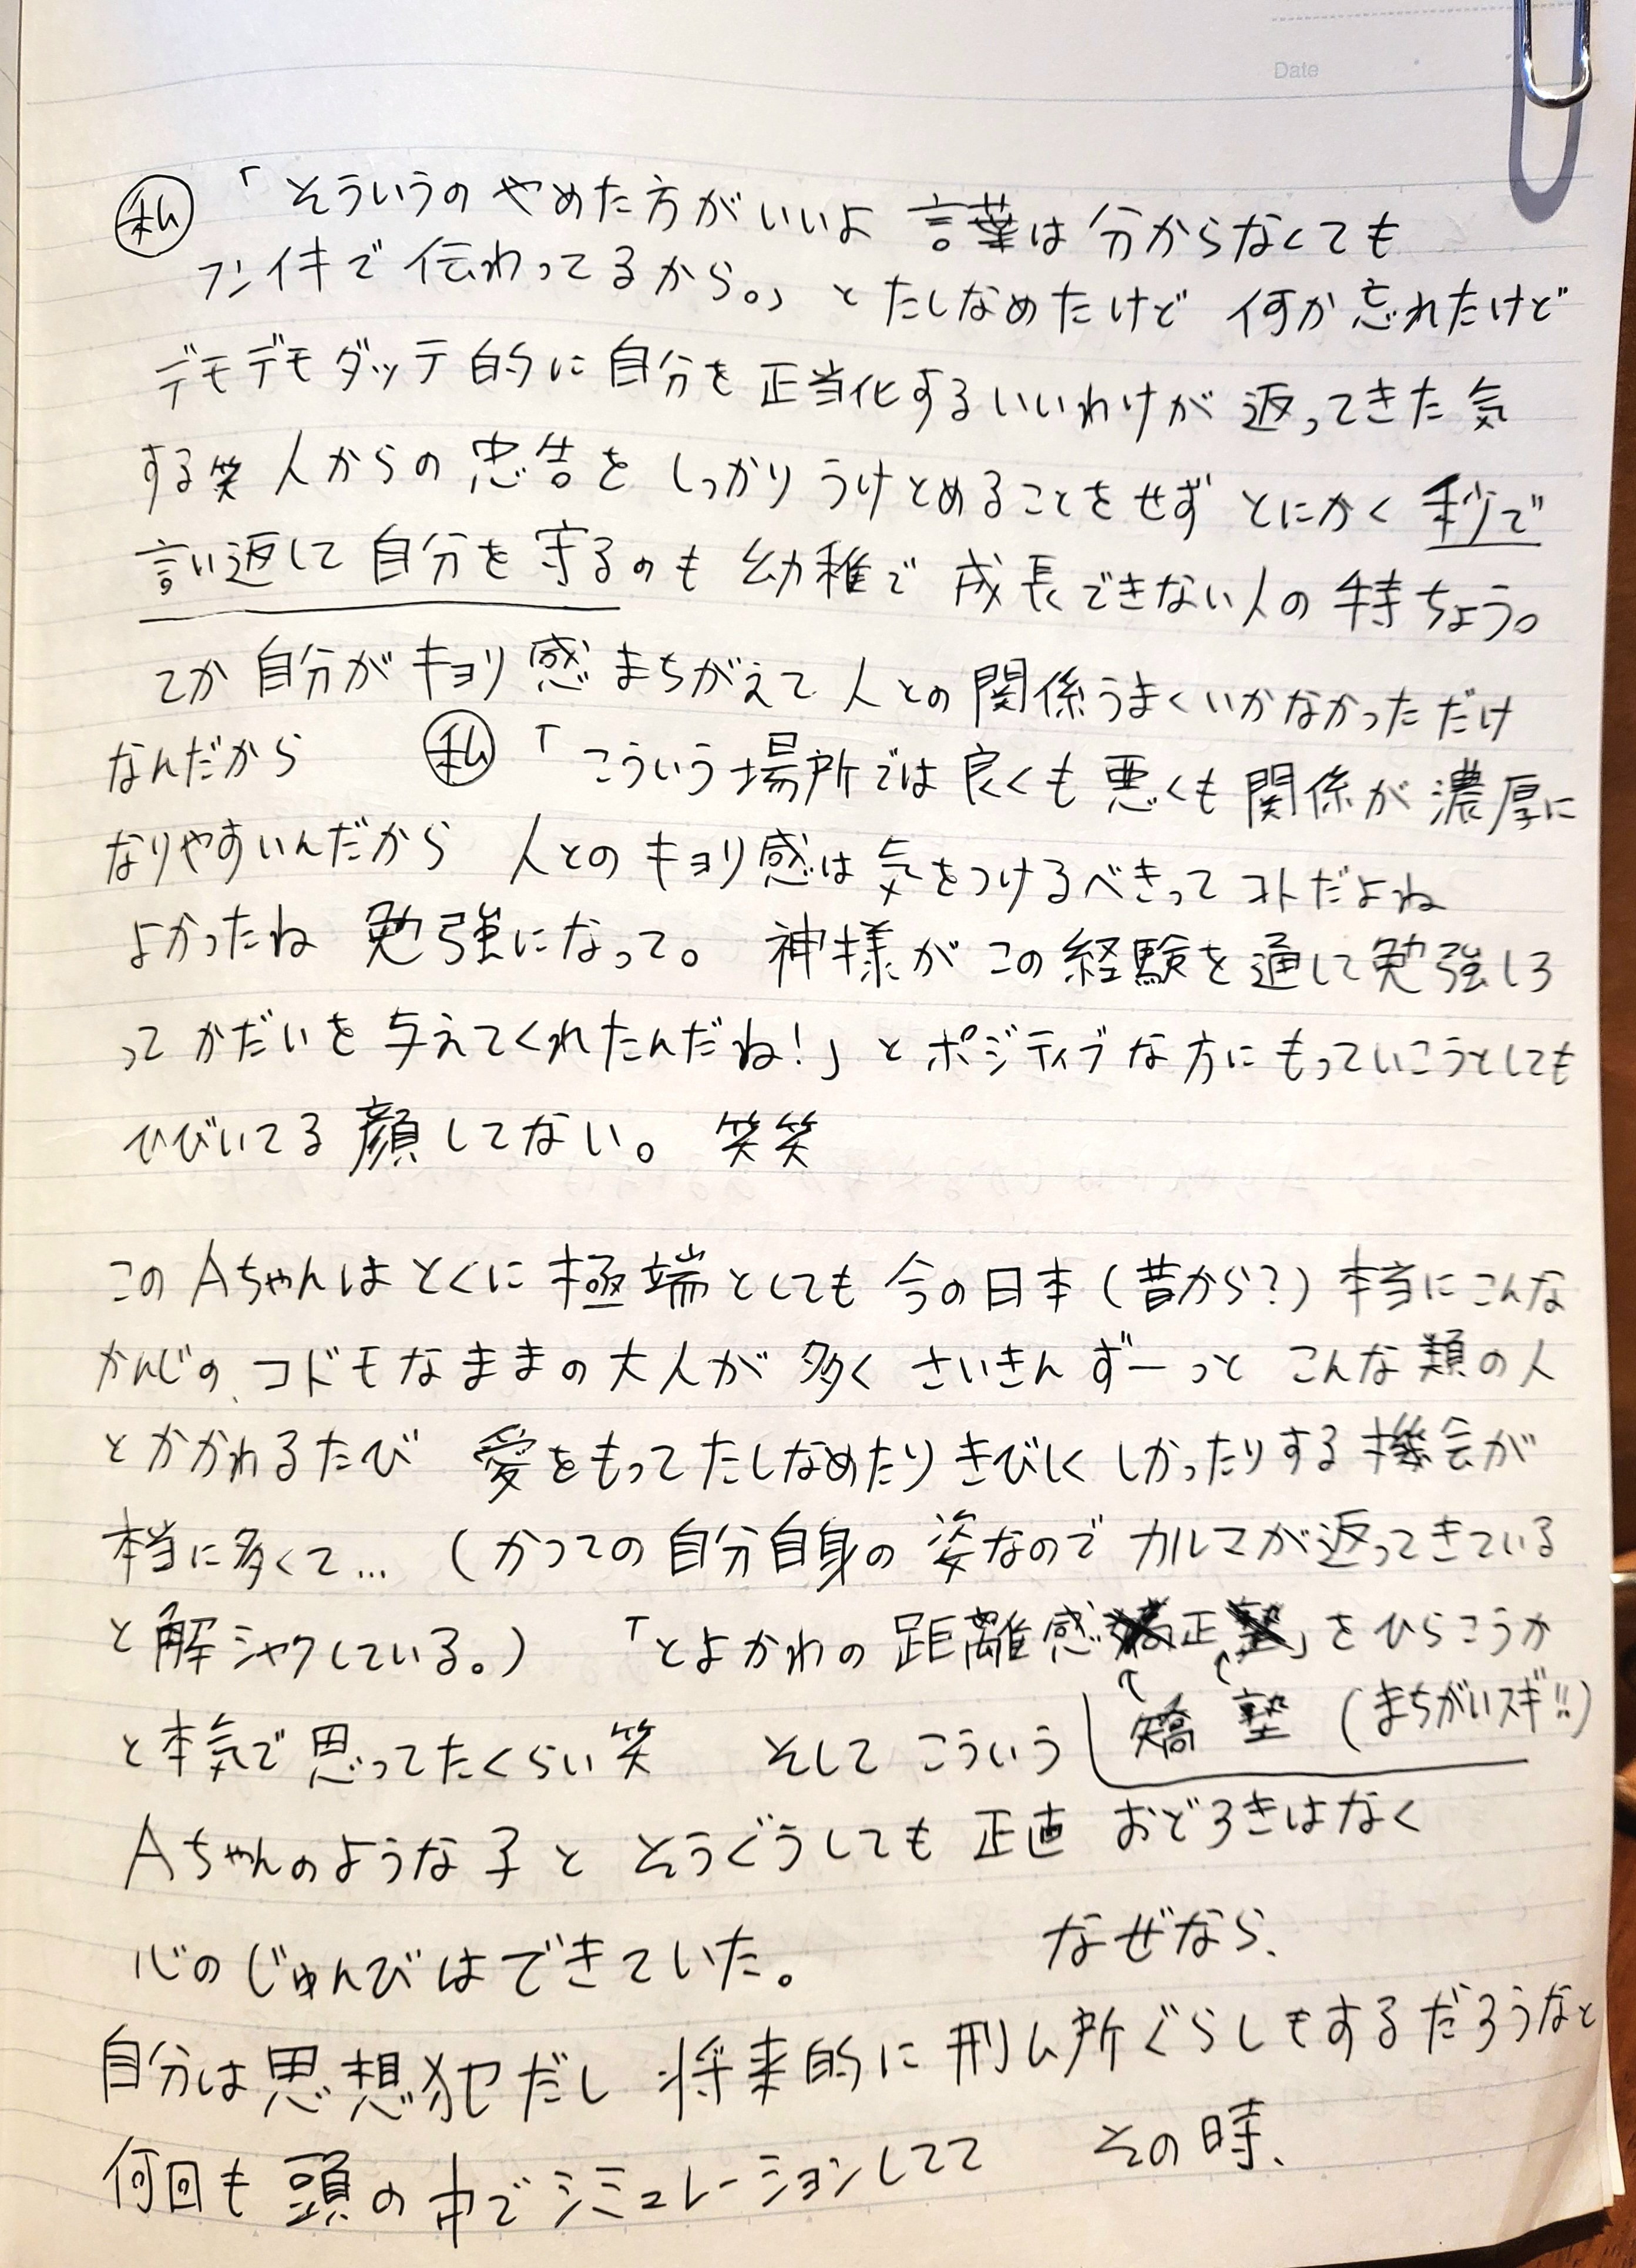 Date
私 「そういうの やめた方がいいよ 言葉は 分からなくても
フンイキで 伝わってるから。」 と たしなめたけど 何か忘れたけど
デモデモダッテ的に 自分を 正当化するいいわけが 返ってきた気
する笑 人からの 忠告を しっかり うけとめることをせず とにかく 秒で
言い返して 自分を 守るのも 幼稚で 成長できない人の 特ちょう。
てか 自分が キョリ感 まちがえて 人との 関係うまくいかなかっただけ
なんだから 私 「こういう場所では 良くも 悪くも 関係が 濃厚に
なりやすいんだから 人との キョリ感は 気をつけるべきって コトだよね
よかったね 勉強になって。 神様が この 経験を 通して 勉強しろ
って かだいを 与えてくれたんだね!」と ポジティブな方に もっていこうとしても
ひびいてる 顔してない。 笑笑
この Aちゃんは とくに 極端としても 今の日本 (昔から?) 本当に こんな
かんじの、コドモなままの 大人が 多く さいきん ずーっと こんな 類の人
と かかわるたび 愛をもって たしなめたり きびしく しかったりする 機会が
本当に多くて… (かつての 自分自身の 姿なので カルマが 返ってきている
と 解シャクしている。) 「とよかわの 距離感 正 」を ひらこうか
と 本気で 思ってたくらい 笑 そして こういう 矯 塾 (まちがいスギ!!)
Aちゃんのような 子と そうぐうしても 正直 おどろきはなく
心の じゅんびは できていた。 なぜなら、
自分は 思想犯だし 将来的に 刑ム所ぐらしもするだろうなと
何回も 頭の 中で シミュレーションしてて その時、